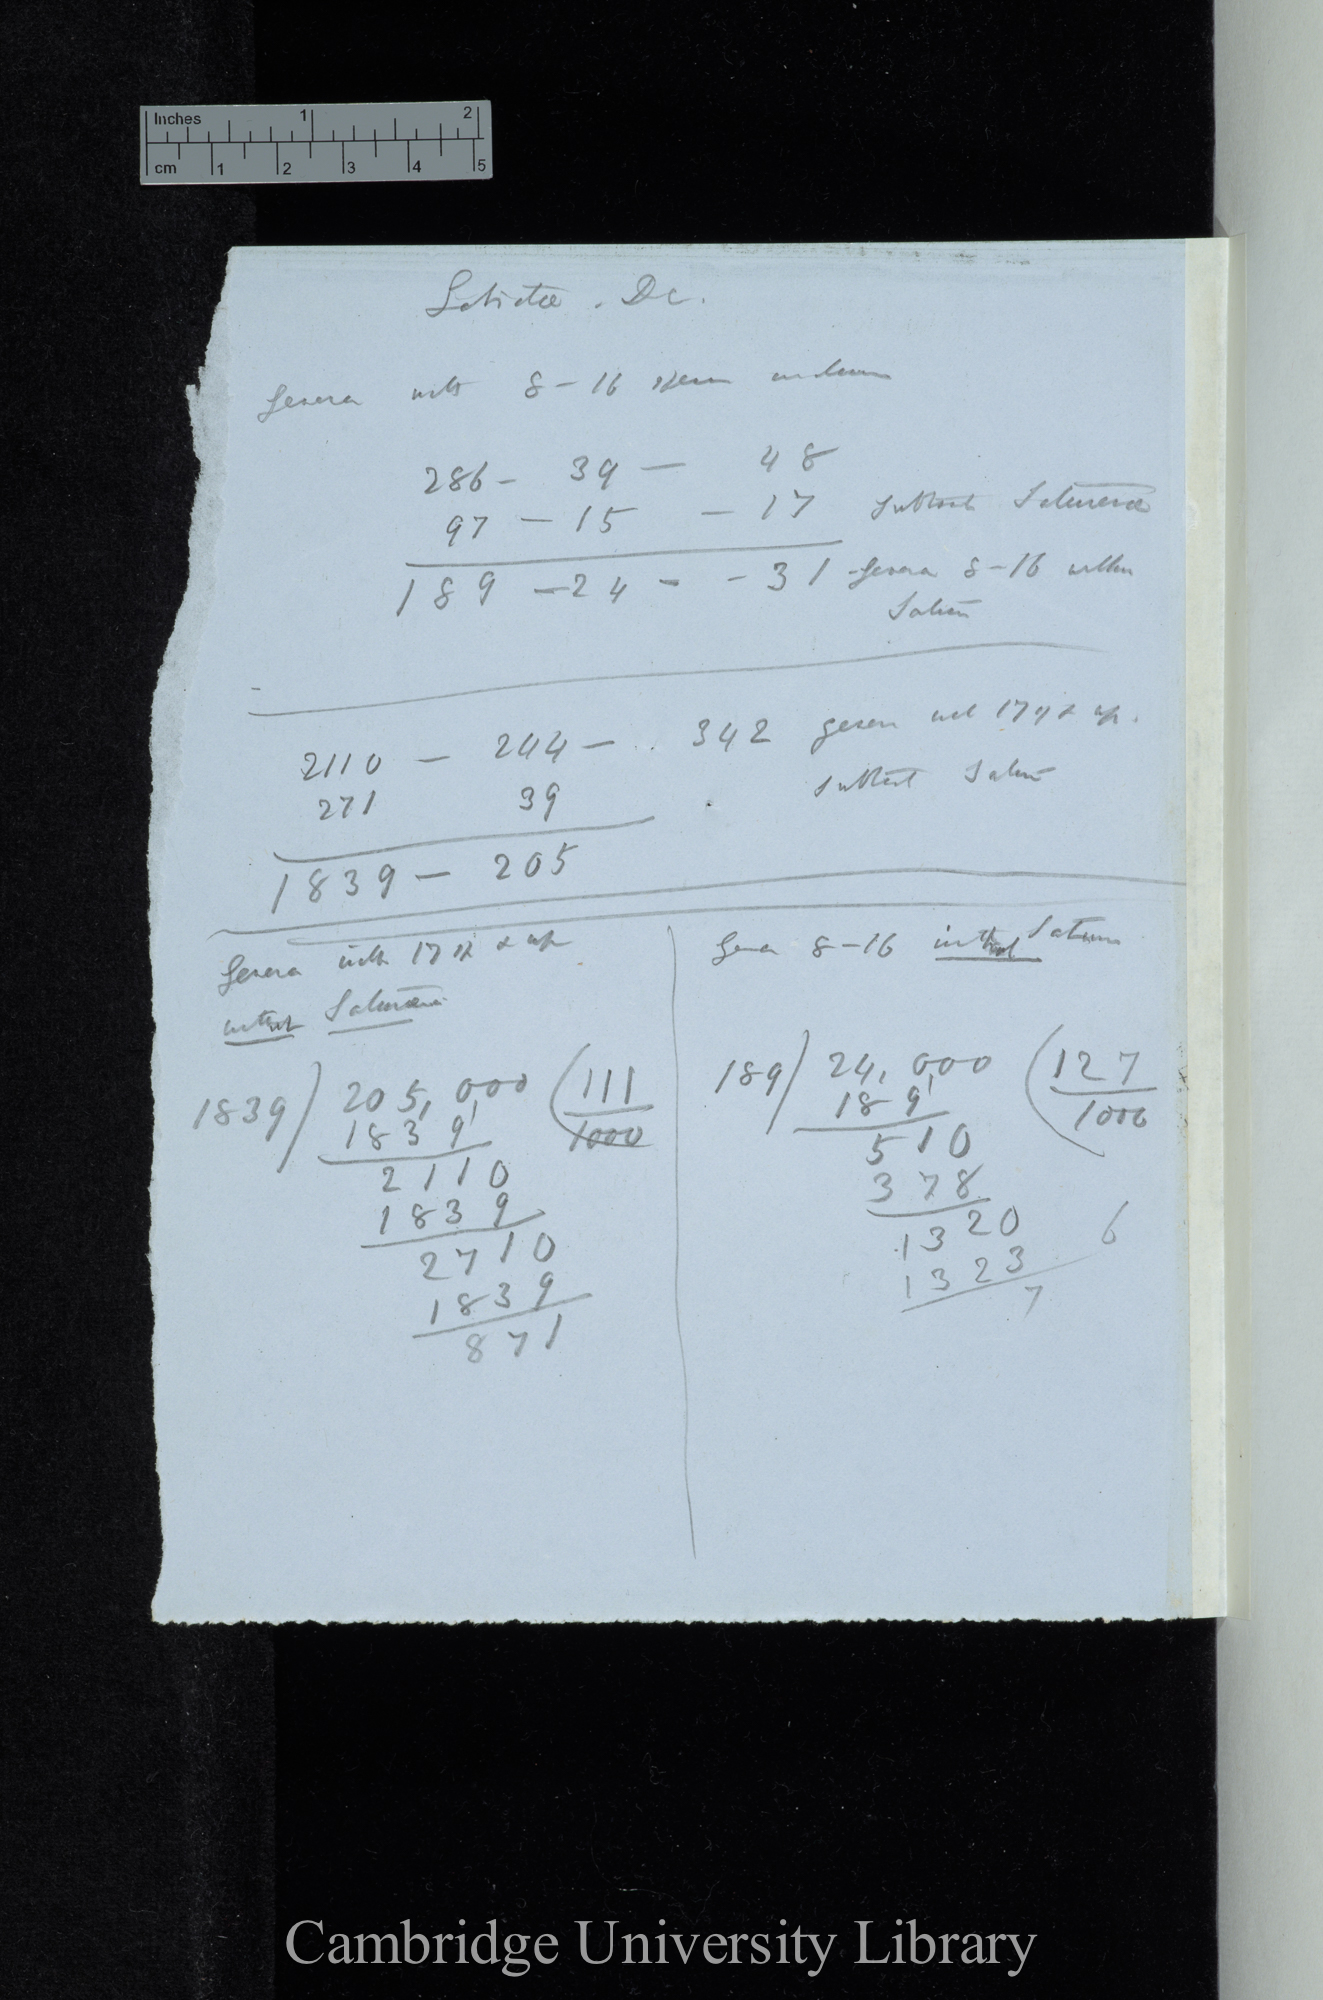 Inches 1 2
cm 1 2 3 4 5
Labiatæ. D C.
Genera with 8-16 species inclusive
286 - 39 - 48
97 - 15 - 17 subtract Satureæ
189 - 24 - - 31 - Genera 8-16 without
2110 - 244 - .. 342 genera with 17 & up.
271 39 subtract
1839 - 205
Genera with 17 sp & up
without
Genera 8-16 without
1839) 205,000 (111
1839 1000
2110
1839
2710
1839
871
189) 24,000 (127
189 1000
510
378
1320 6
1323
7
Cambridge University Library